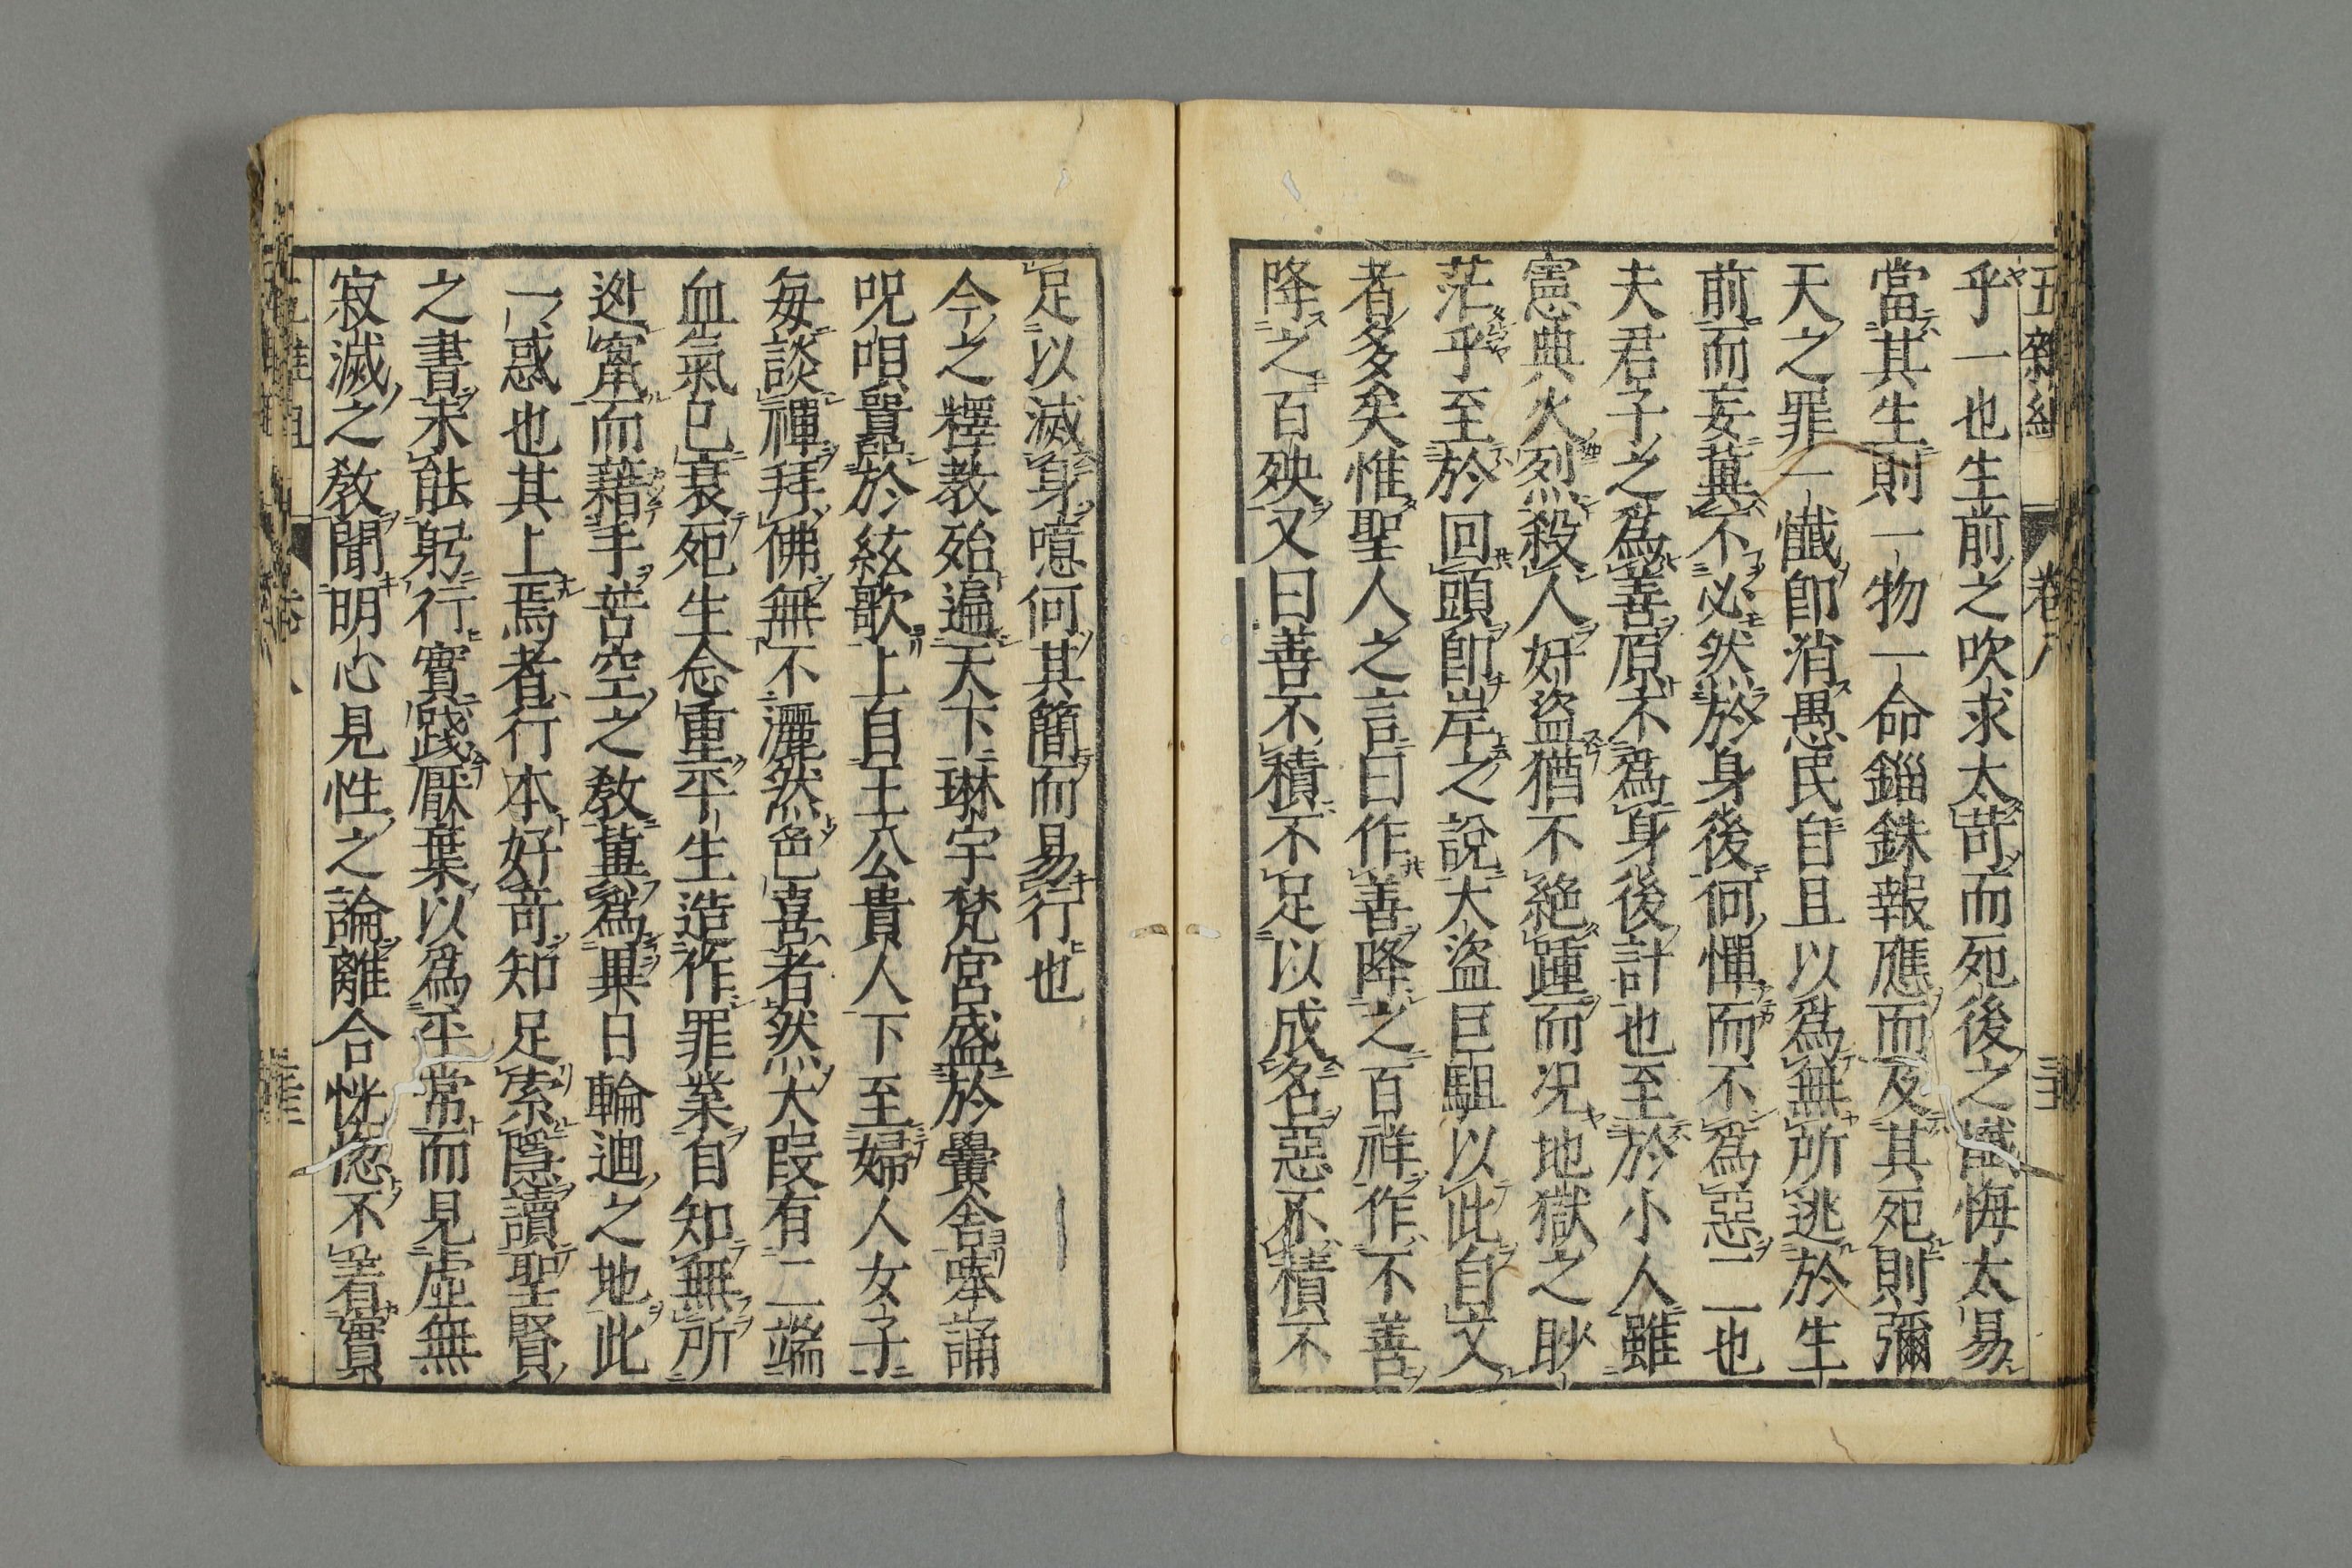 五雜組 卷八
乎一也生前之吹求太苛而死後之懺悔太易
當其生則一物一命錙銖報應而及其死則彌
天之罪一懺卽消愚民自且以爲無所逃於生
前而妄兾不必然於身後何憚而不爲惡二也
夫君子之爲善原不爲身後計也至於小人雖
憲典火烈殺人奸盜猶不絶踵而况地獄之眇
茫乎至於回頭卽岸之說大盜巨駔以此自文
者多矣惟聖人之言曰作善降之百祥作不善
降之百殃又曰善不積不足以成名惡不積不
足以滅身噫何其簡而易行也
今之釋教殆遍天下琳宇梵宮盛於黌舍唪誦
呪唄囂於絃歌上自王公貴人下至婦人女子
每談禪拜佛無不灑然色喜者然大段有二端
血氣已衰死生念重平生造作罪業自知無所
迯竄而藉手苦空之教兾爲異日輪迴之地此
一惑也其上焉者行本好竒知足索隱讀聖賢
之書未能躬行實踐厭棄以爲平常而見虛無
寂滅之教聞明心見性之論離合恍惚不着實